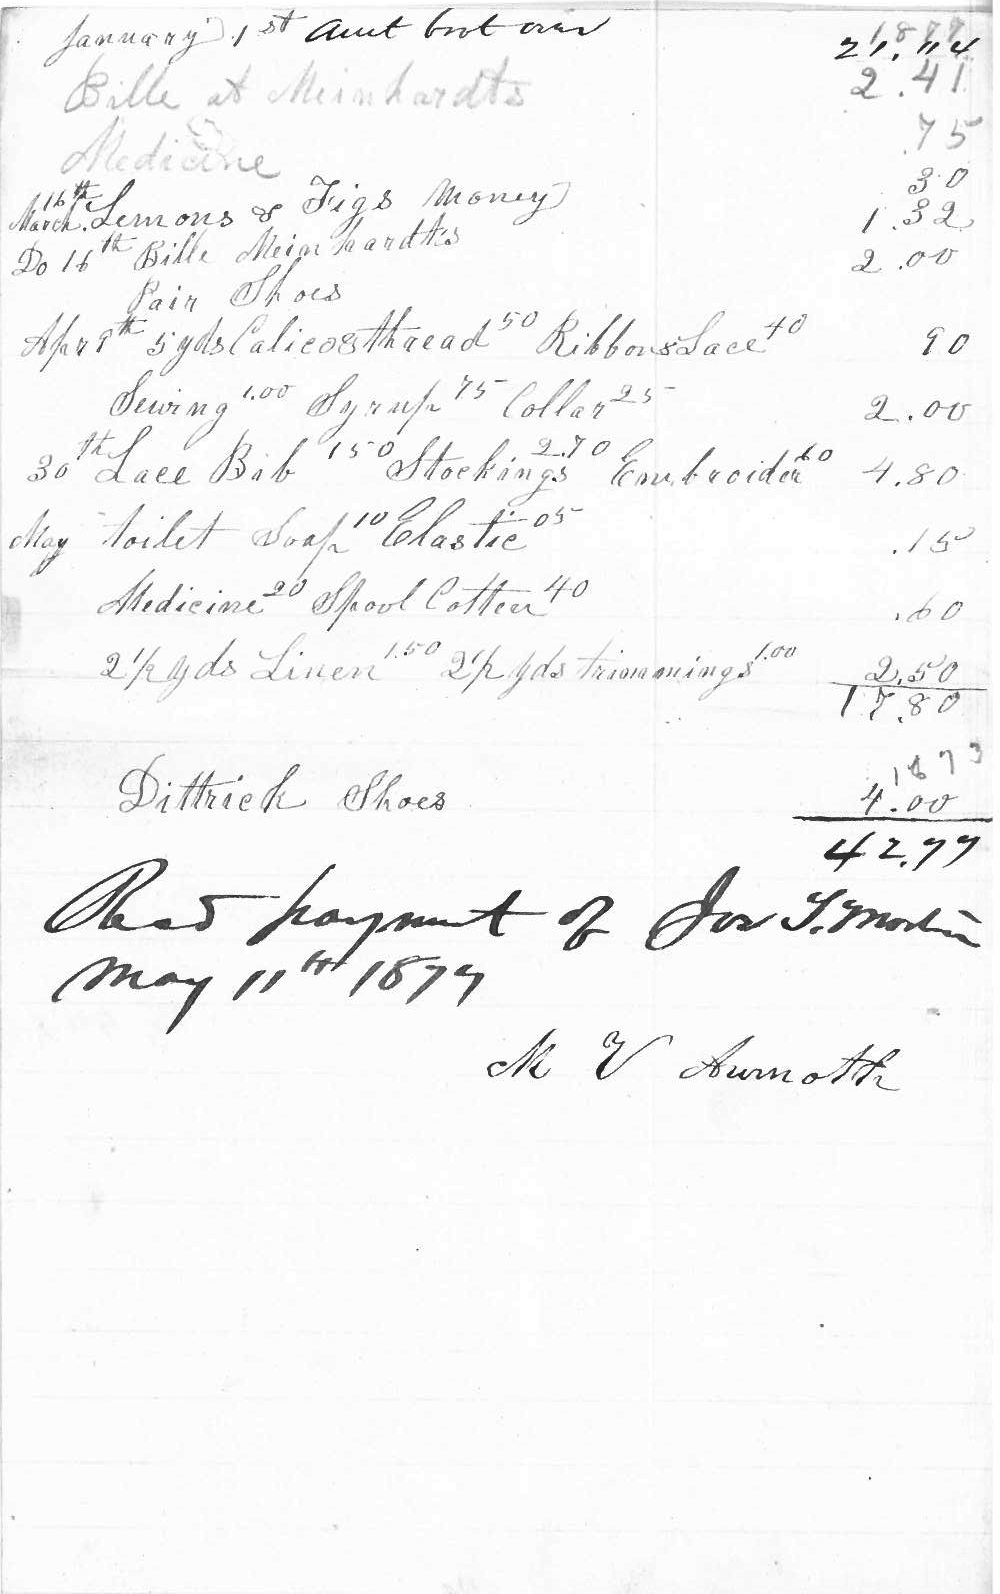 January 1st Amt brot over 1877 21.
Bille at Meinhardts 2.41
Medicine .75
March 16th Lemons & Figs Money 30
Do 16th Bille Meinhardt's 1.32
Pair Shoes 2.00
Apr 9th 5 yds Calico & thread 50 Ribbon & Lace 40 90
Sewing 1.00 Syrup 75 Collar 25 2.00
30th Lace Bib 150 Stockings 2.70 Embroider 60 4.80
May toilet Soap 10 Elastic 05 .15
Medicine 20 Spool Cotten 40 .60
2 1/2 yds Linen 1.50 2 1/2 yds trimmings 1.00 2.50
17.80
187
Dittrick Shoes 4.00
42.77
Recd payment of Jos T. Martin
May 11th 1877
M V Aumoth